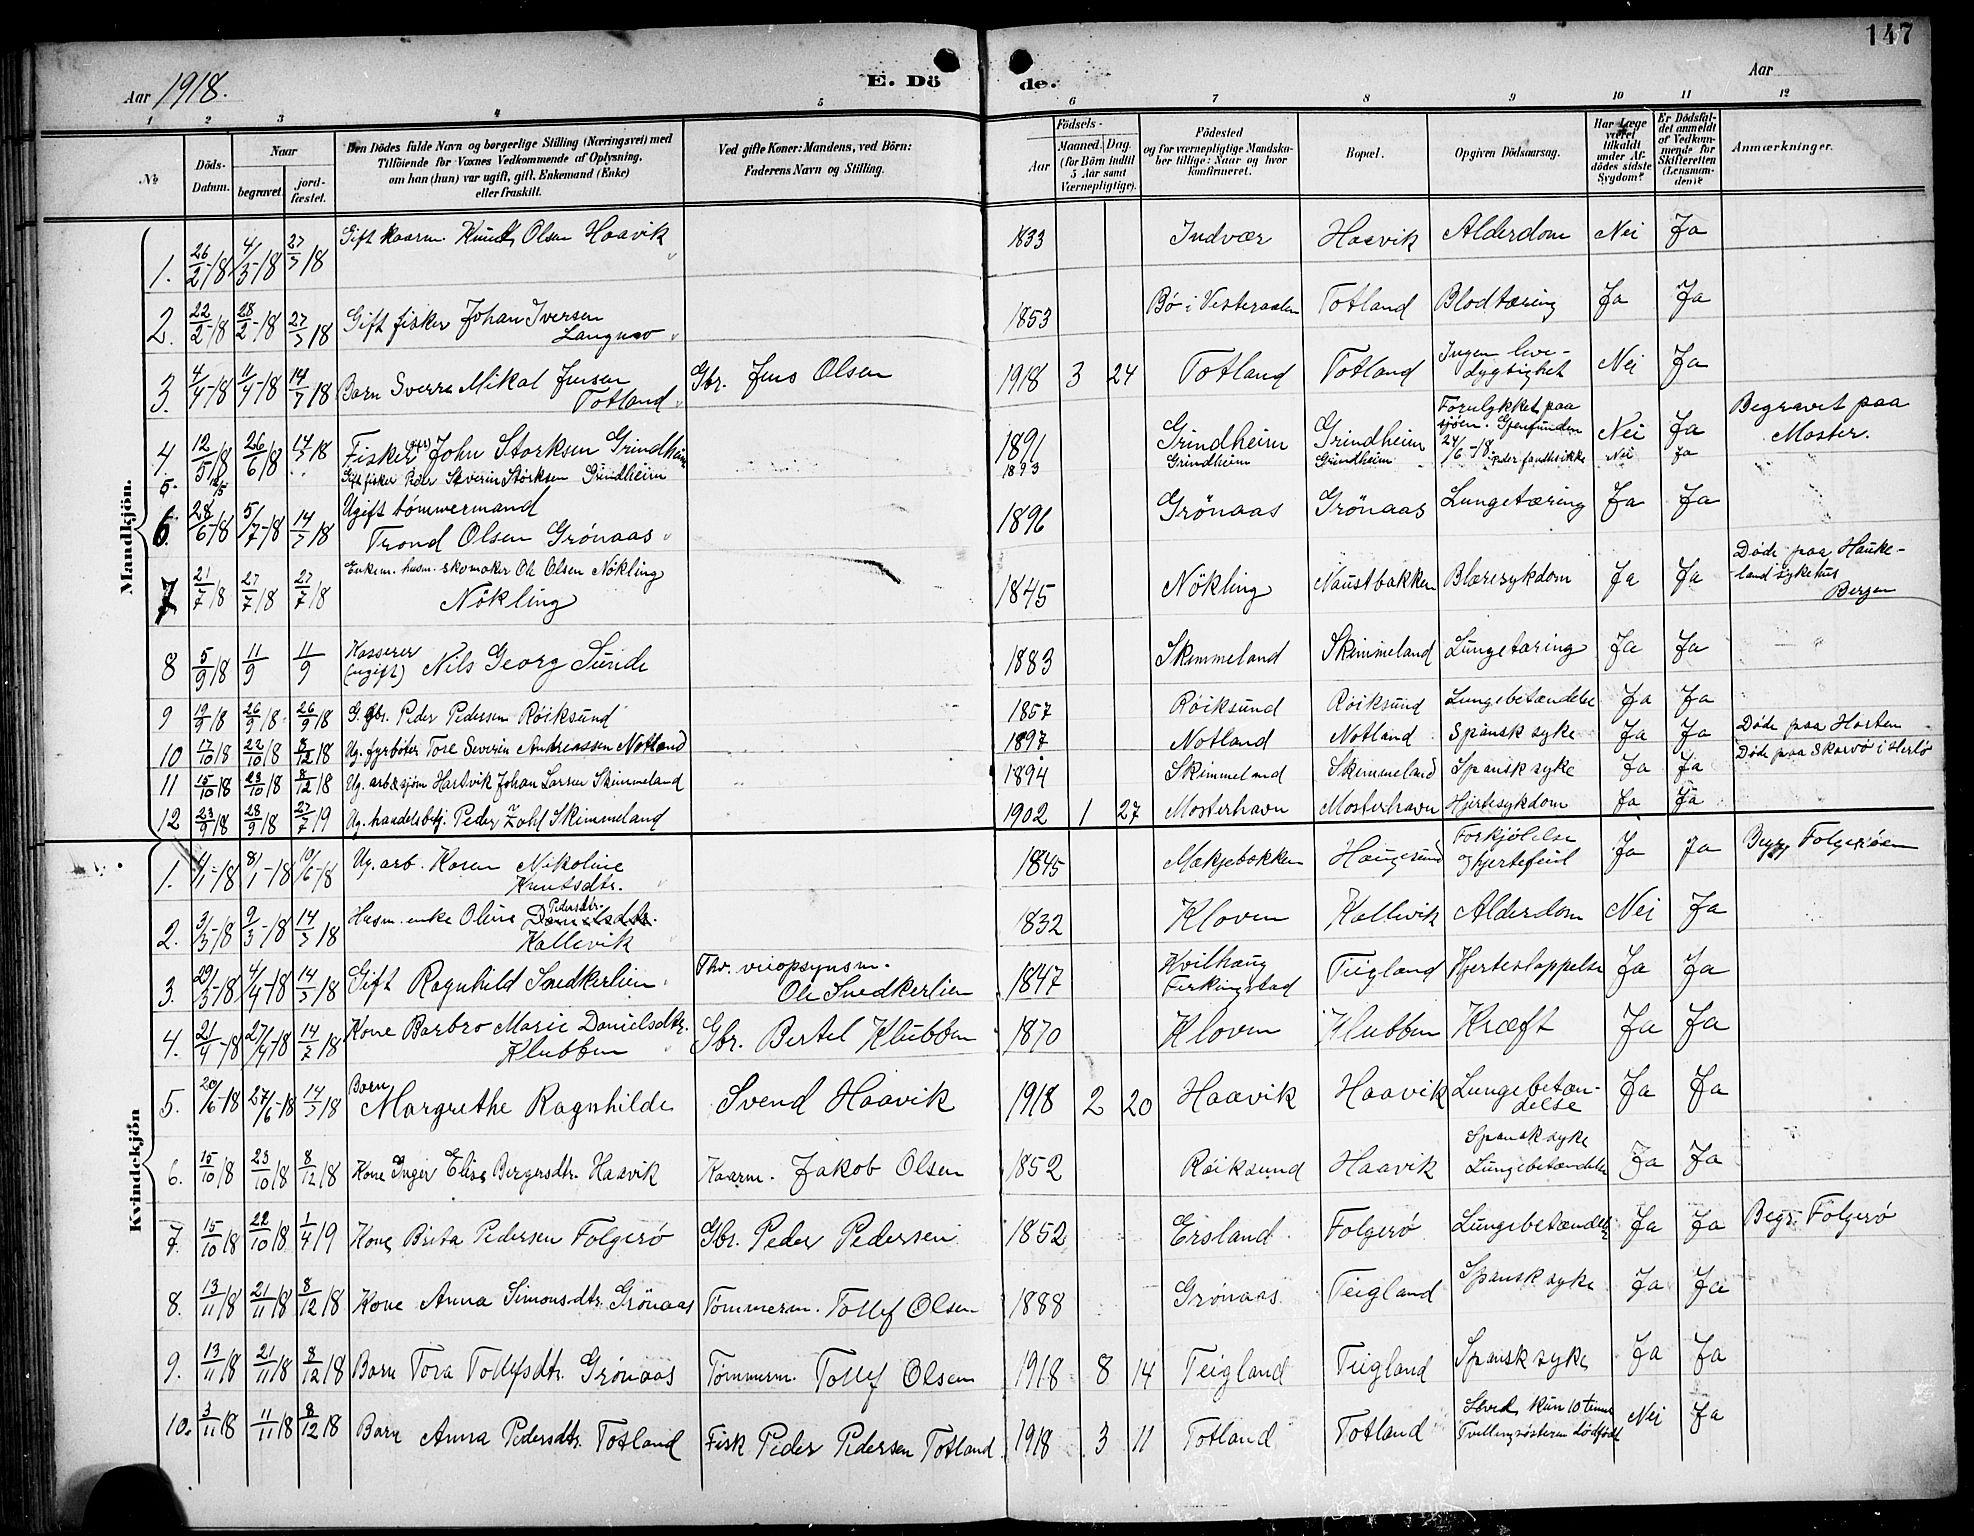 147
Aar 1918.
E. Dö de.
Aar
1 2 3 4 5 6 7 8 9 10 11 12
No
Döds-Datum.
Naar
begravet.
jord-fæstet.
Den Dödes fulde Navn og borgerlige Stilling (Næringsvei) med
Tilföiende for Voxnes Vedkommende af Oplysning,
om han (hun) var ugift, gift, Enkemand (Enke)
eller fraskilt.
Ved gifte Koner: Mandens, ved Börn:
Faderens Navn og Stilling.
Födsels-
Aar
Maaned. Dag.
(for Börn indtil
5 Aar samt
Værnepligtige).
Födested
og for værnepligtige Mandska-
ber tillige: Naar og hvor
konfirmeret.
Bopæl.
Opgiven Dödsaarsag.
Har Læge
været
tilkaldt
under Af-
dödes sidste
Sygdom?
Er Dödsfal-
det anmeldt
af Vedkom-
mende for
Skifteretten
(Lensman-
den)?
Anmærkninger.
Mandkjön.
1. 26/2-18 4/3-18 27/3 18 Gift kaarm. Knut Olsen Haavik 1833 Indvær Haavik Alderdom Nei Ja
2. 22/2-18 28/2-18 27/3 18 Gift fisker Johan Iversen
Langnao 1853 Bø i Vesteraalen Totland Blodtæring Ja Ja
3. 4/4-18 11/4-18 14/7 18 Barn Sverre Mikal Jensen
Totland Gbr. Jens Olsen 1918 3 24 Totland Totland Ingen leve-
dygtighet Nei Ja
4. 12/5 18 26/6 18 14/7 18 Fisker (gift) John Storksen Grindheim 1891 Grindheim Grindheim Forulykket paa
sjøen. Gjenfunden
24/6-18 Nei Ja Begravet paa
Moster.
5. 12/5 Gift fisker Peder Severin Storksen Grindheim 1893 Grindheim Grindheim Peder fandtes ikke Nei Ja
6. 28/6-18 5/7-18 14/7 18 Ugift tømmermand
Trond Olsen Grönaas 1896 Grönaas Grönaas Lungetæring Ja Ja
7 21/7 18 27/7 18 27/7 18 Enkem. husm. skomaker Ole Olsen Nökling
Nökling 1845 Nökling Naustbakken Blæresykdom Ja Ja Døde paa Hauke-
land sykehus
Bergen
8 5/9 18 11/9 11/9 Kasserer
(ugift) Nils Georg Sunde 1883 Skimmeland Skimmeland Lungetæring Ja Ja "
9 19/9 18 26/9 18 26/9 18 G. gbr. Peder Pedersen Røiksund 1857 Røiksund Røiksund Lungebetændelse Ja Ja
10 17/10 18 22/10 18 8/12 18 Ug. fyrbøter Tore Severin Andreassen Notland 1897 Notland Notland Spansk syke Ja Ja Døde paa Horten
11 15/10 18 23/10 18 8/12 18 Ug. arb. & sjøm Hartvik Johan Larsen Skimmeland 1894 Skimmeland Skimmeland Spansk syke Ja Ja Døde paa Skarvø i Herlø
12 23/9 18 28/9 18 27/7 19 Ug. handelsbetj. Peder Zahl Skimmeland 1902 1 27 Mosterhavn Mosterhavn Hjertesykdom Ja Ja
Kvindekjön
1. 4/1-18 8/1-18 10/6-18 Ug. arb. Karen Nikoline
Knutsdtr. 1845 Mækjebakken Haugesund Forkjölelse
og hjertefeil Ja Ja Begr. Folgerøen
2. 3/3-18 9/3-18 14/7 18 Husm. enke Oline Pedersdtr.
Kallevik 1832 Kloven Kallevik Alderdom Nei Ja
3. 29/3-18 4/4-18 14/7 18 Gift Ragnhild Snedkerlien Fhv. veiopsynsm.
Ole Snedkerlien 1847 Kvilhaug
Ferkingstad Teigland Hjerteslappelse Ja Ja
4. 21/4-18 27/4-18 14/7 18 Kone Barbro Marie Danielsdtr.
Klubben Gbr. Bertel Klubben 1870 Kloven Klubben Kræft Ja Ja
5. 20/6-18 27/6-18 14/7 18 Barn
Margrethe Ragnhilde Svend Haavik 1918 2 20 Haavik Haavik Lungebetæn-
delse Ja Ja
6. 15/10 18 23/10 18 8/12 18 Kone Inger Elise Bergersdtr. Haavik Kaarm. Jakob Olsen 1852 Røiksund Haavik Spansk syke
Lungebetændelse Ja Ja
7. 15/10 18 22/10 18 1/4 19 Kone Brita Pedersen Folgerø Gbr. Peder Pedersen 1852 Ersland Folgerø Lungebetændelse Ja Ja Begr. Folgerø
8. 13/11 18 21/11 18 8/12 18 Kone Anna Simonsdtr. Grönaas Tømmerm. Tollef Olsen 1888 Grønaas Teigland Spansk syke Ja Ja
9. 13/11 18 21/11 18 8/12 18 Barn Tora Tollefsdtr. Grønaas Tømmerm. Tollef Olsen 1918 8 14 Teigland Teigland Spansk syke Ja Ja
10. 3/11 18 11/11 18 8/12 18 Barn Anna Pedersdtr. Totland Fisk Peder Pedersen Totland 1918 3 11 Totland Totland Levde kun 10 timer
Tvillingsøsteren dødfødt Nei Ja